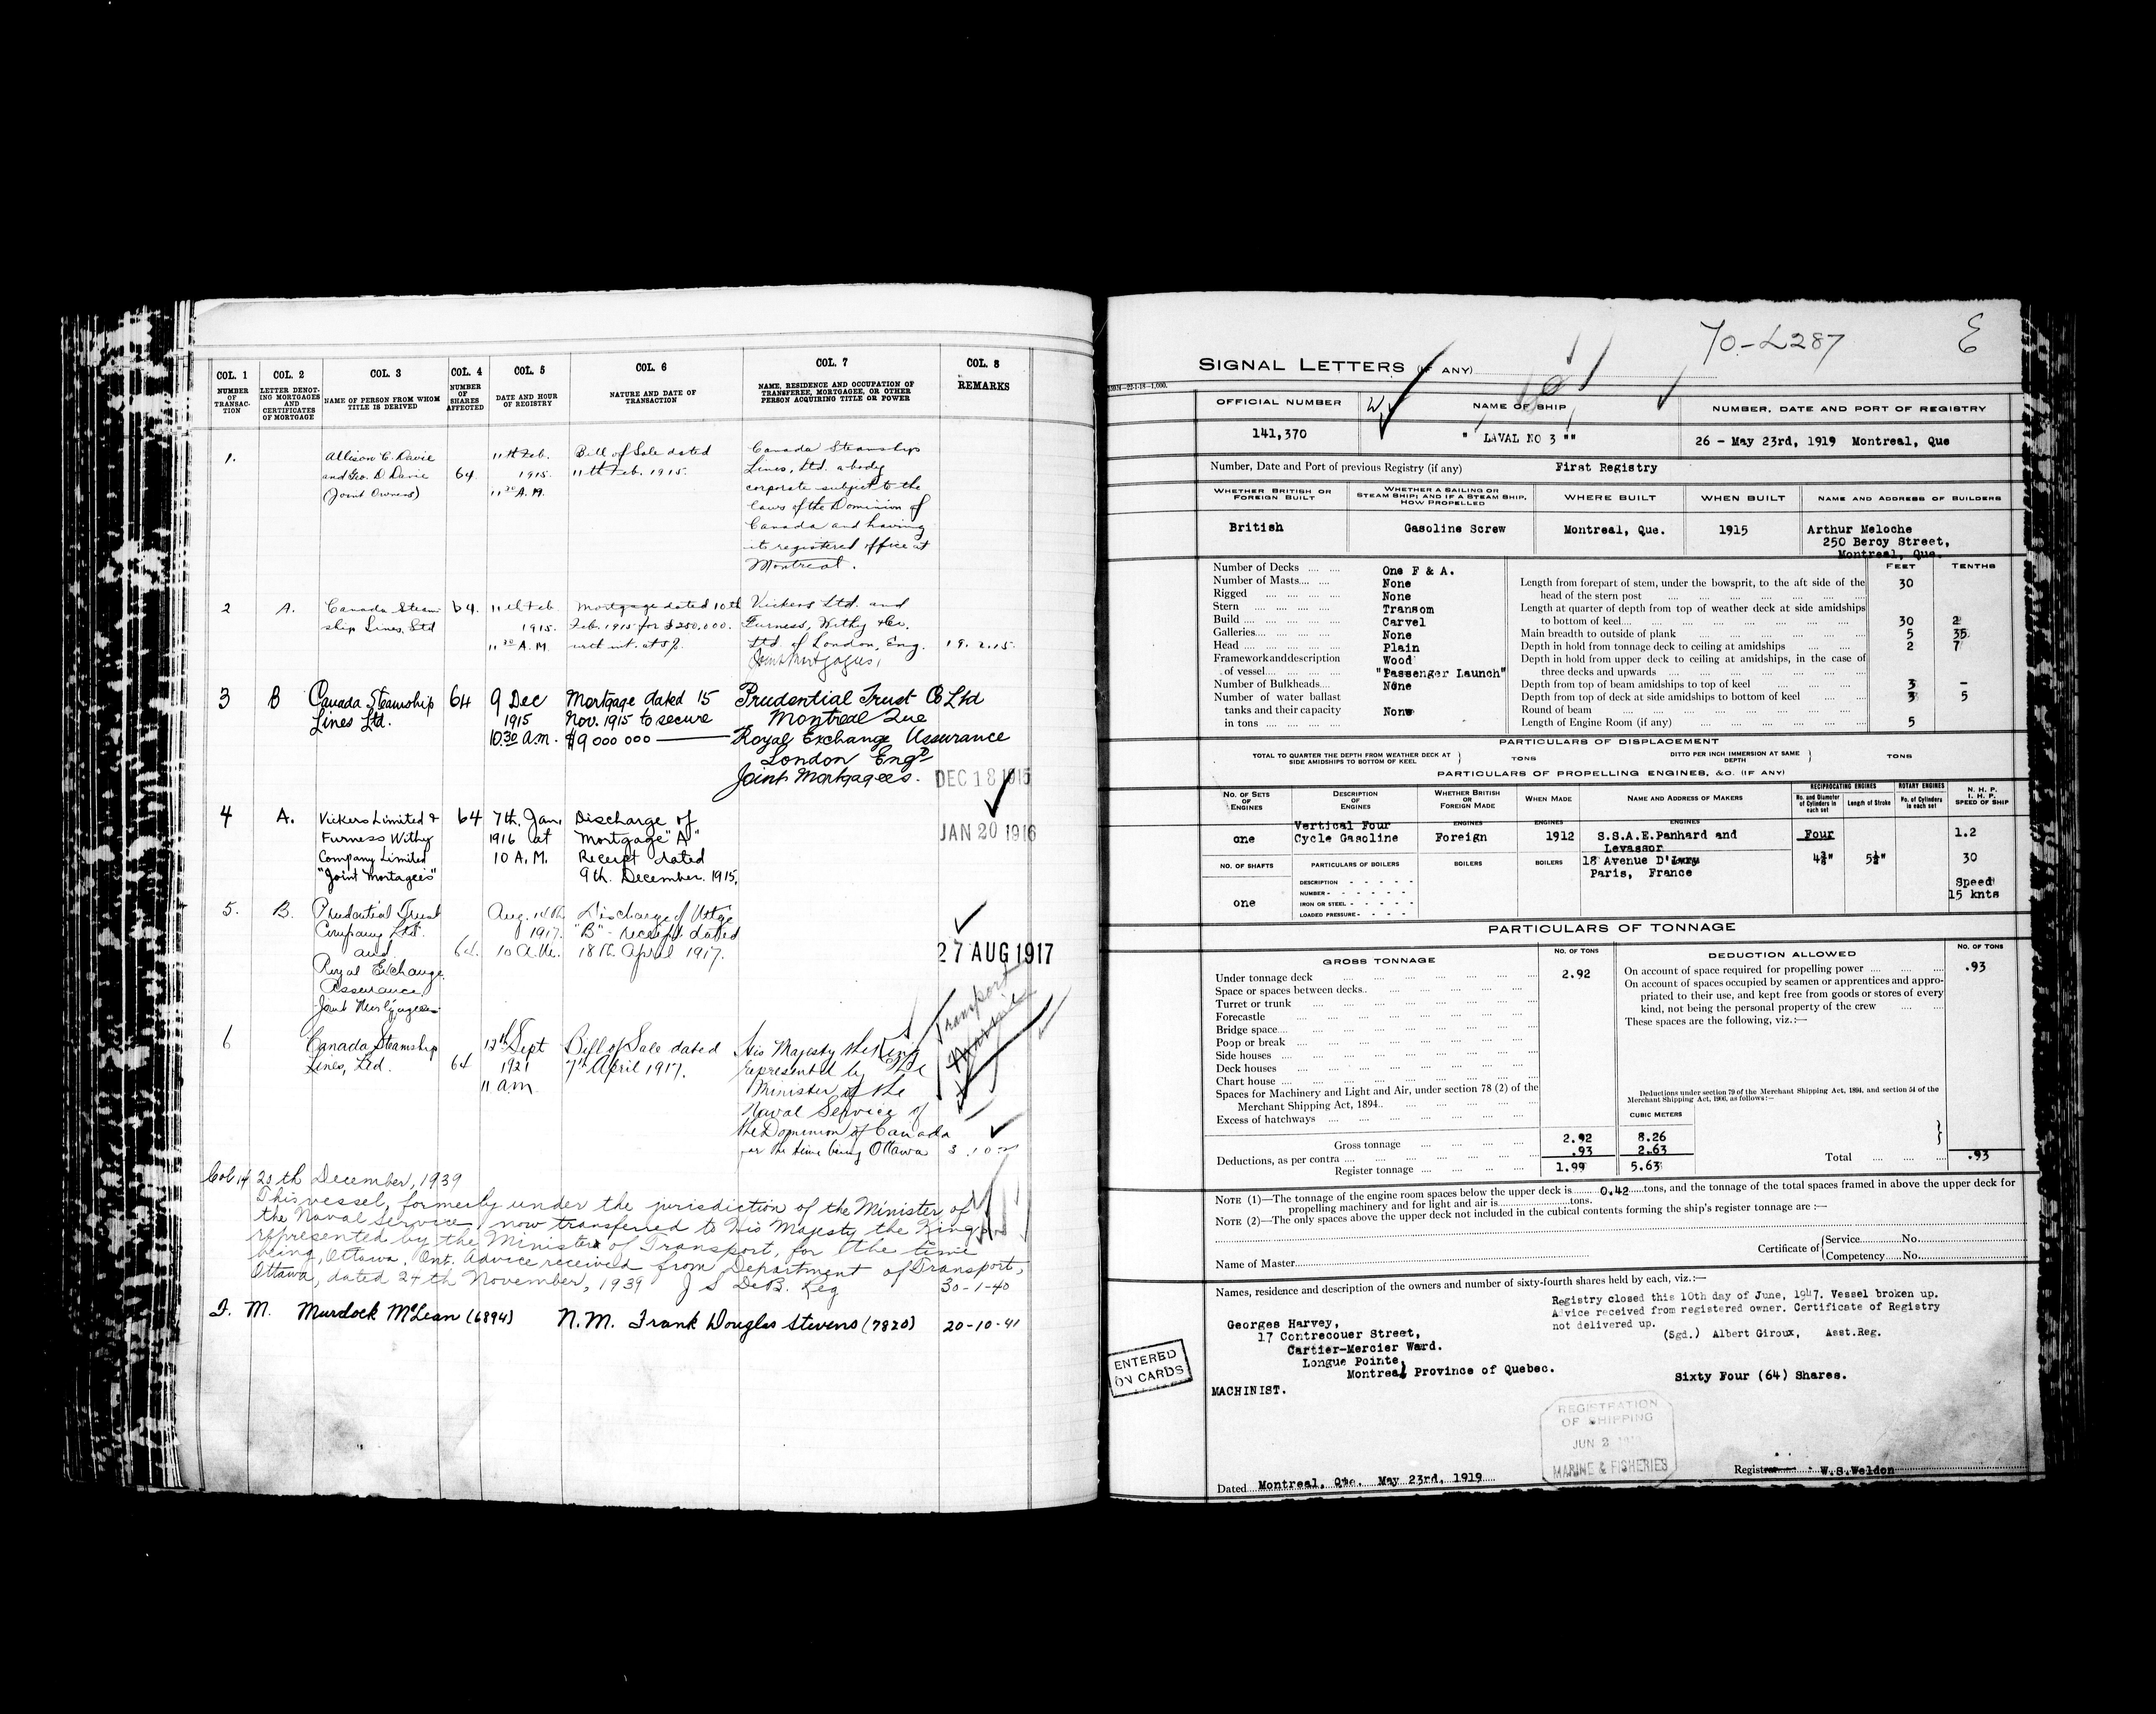 COL. 1 COL. 2 COL. 3 COL. 4 COL. 5 COL. 6 COL. 7 COL. 8
NUMBER OF TRANSACTION
LETTER DENOTING MORTGAGES AND CERTIFICATES OF MORTGAGE
NAME OF PERSON FROM WHOM TITLE IS DERIVED
NUMBER OF SHARES AFFECTED
DATE AND HOUR OF REGISTRY
NATURE AND DATE OF TRANSACTION
NAME, RESIDENCE AND OCCUPATION OF TRANSFEREE, MORTGAGEE, OR OTHER PERSON ACQUIRING TITLE OR POWER
REMARKS
1. Allison C. Davie 11th Feb. Bill of Sale dated Canada Steamships
and Geo. D. Davie 64. 1915. 11th Feb. 1915. Lines, Ltd. a body
(Joint Owners) 11 30 A.M. corporate subject to the
laws of the Dominion of
Canada and having
its registered office at
Montreal.
2 A. Canada Steam 64. 11th Feb Mortgage dated 10th Vickers Ltd. and
ship Lines, Ltd 1915. Feb. 1915 for $250,000. Furness, Withy & Co.
11 30 A.M. with int. at 5%. Ltd. of London, Eng. 19.2.15.
Joint Mortgagees,
3 B Canada Steamship 64 9 Dec Mortgage dated 15 Prudential Trust Co Ltd
Lines Ltd. 1915 Nov. 1915 to secure Montreal Que
10.30 a.m. $9 000 000 Royal Exchange Assurance
London Engd
Joint Mortgagees. DEC 18 1915
4 A. Vickers Limited & 64 7th. Jan. Discharge of
Furness Withy 1916 at Mortgage "A" JAN 20 1916
Company Limited 10 A.M. Receipt dated
"Joint Mortagees" 9th. December. 1915.
5. B. Prudential Trust Aug. 14th Discharge of Mtge
Company Ltd. 1917. "B" - receipt dated
and 64. 10 a.m. 18th April 1917. 27 AUG 1917
Royal Exchange
Assurance
Joint Mortgagees
Transport
Marine
6 Canada Steamship 12th Sept Bill of Sale dated His Majesty the King
Lines, Ltd. 64 1921 7th April 1917. represented by the
11 a.m. Minister of the
Naval Service of
the Dominion of Canada
for the time being Ottawa
Col 14 25th December, 1939
This vessel, formerly under the jurisdiction of the Minister of
the Naval Service, now transferred to His Majesty the King,
represented by the Minister of Transport, for the time
being, Ottawa, Ont. Advice received from Department of Transport,
Ottawa, dated 24th November, 1939 J S DeB. Reg 30-1-40
I. M. Murdock McLean (6894) N.M. Frank Douglas Stevens (7820) 20-10-41
70-L287 E
SIGNAL LETTERS (IF ANY)
OFFICIAL NUMBER NAME OF SHIP NUMBER, DATE AND PORT OF REGISTRY
141,370 " LAVAL NO 3 "" 26 - May 23rd, 1919 Montreal, Que
Number, Date and Port of previous Registry (if any) First Registry
WHETHER BRITISH OR FOREIGN BUILT
WHETHER A SAILING OR STEAM SHIP; AND IF A STEAM SHIP, HOW PROPELLED
WHERE BUILT WHEN BUILT NAME AND ADDRESS OF BUILDERS
British Gasoline Screw Montreal, Que. 1915 Arthur Meloche
250 Bercy Street,
Montreal, Que.
FEET TENTHS
Number of Decks One F & A.
Number of Masts None
Rigged None
Stern Transom
Build Carvel
Galleries None
Head Plain
Framework and description of vessel Wood "Passenger Launch"
Number of Bulkheads None
Number of water ballast tanks and their capacity in tons None
Length from forepart of stem, under the bowsprit, to the aft side of the head of the stern post 30
Length at quarter of depth from top of weather deck at side amidships to bottom of keel 30 2
Main breadth to outside of plank 5 35
Depth in hold from tonnage deck to ceiling at amidships 2 7
Depth in hold from upper deck to ceiling at amidships, in the case of three decks and upwards
Depth from top of beam amidships to top of keel 3 -
Depth from top of deck at side amidships to bottom of keel 3 5
Round of beam
Length of Engine Room (if any) 5
PARTICULARS OF DISPLACEMENT
TOTAL TO QUARTER THE DEPTH FROM WEATHER DECK AT SIDE AMIDSHIPS TO BOTTOM OF KEEL TONS DITTO PER INCH IMMERSION AT SAME DEPTH TONS
PARTICULARS OF PROPELLING ENGINES, &C. (IF ANY)
No. OF SETS OF ENGINES
DESCRIPTION OF ENGINES
WHETHER BRITISH OR FOREIGN MADE
WHEN MADE
NAME AND ADDRESS OF MAKERS
RECIPROCATING ENGINES ROTARY ENGINES
No. and Diameter of Cylinders in each set Length of Stroke No. of Cylinders in each set
N. H. P. I. H. P. SPEED OF SHIP
ENGINES ENGINES ENGINES
one Vertical Four Cycle Gasoline Foreign 1912 S.S.A.E.Panhard and Four 1.2
Levassor
NO. OF SHAFTS PARTICULARS OF BOILERS BOILERS BOILERS 18 Avenue D'Ivry 30
Paris, France
DESCRIPTION
NUMBER
IRON OR STEEL
LOADED PRESSURE
one Speed
15 knts
PARTICULARS OF TONNAGE
GROSS TONNAGE NO. OF TONS DEDUCTION ALLOWED NO. OF TONS
Under tonnage deck 2.92
Space or spaces between decks
Turret or trunk
Forecastle
Bridge space
Poop or break
Side houses
Deck houses
Chart house
Spaces for Machinery and Light and Air, under section 78 (2) of the
Merchant Shipping Act, 1894
Excess of hatchways
Gross tonnage 2.92 8.26
Deductions, as per contra .93 2.63
Register tonnage 1.99 5.63
On account of space required for propelling power .93
On account of spaces occupied by seamen or apprentices and appropriated to their use, and kept free from goods or stores of every kind, not being the personal property of the crew
These spaces are the following, viz.:—
Deductions under section 79 of the Merchant Shipping Act, 1894, and section 54 of the Merchant Shipping Act, 1906, as follows:—
CUBIC METERS
Total .93
NOTE (1)—The tonnage of the engine room spaces below the upper deck is 0.42 tons, and the tonnage of the total spaces framed in above the upper deck for
propelling machinery and for light and air is tons.
NOTE (2)—The only spaces above the upper deck not included in the cubical contents forming the ship's register tonnage are :—
Certificate of Service No.
Competency No.
Name of Master
Names, residence and description of the owners and number of sixty-fourth shares held by each, viz.:—
Registry closed this 10th day of June, 1947. Vessel broken up.
Advice received from registered owner. Certificate of Registry
not delivered up.
(Sgd.) Albert Giroux, Asst.Reg.
Georges Harvey,
17 Contrecouer Street,
Cartier-Mercier Ward.
Longue Pointe,
Montreal, Province of Quebec.
MACHINIST.
Sixty Four (64) Shares.
ENTERED
ON CARDS
REGISTRATION
OF SHIPPING
JUN 2
MARINE & FISHERIES
Dated Montreal, Que. May 23rd, 1919
Registrar W.S.Weldon